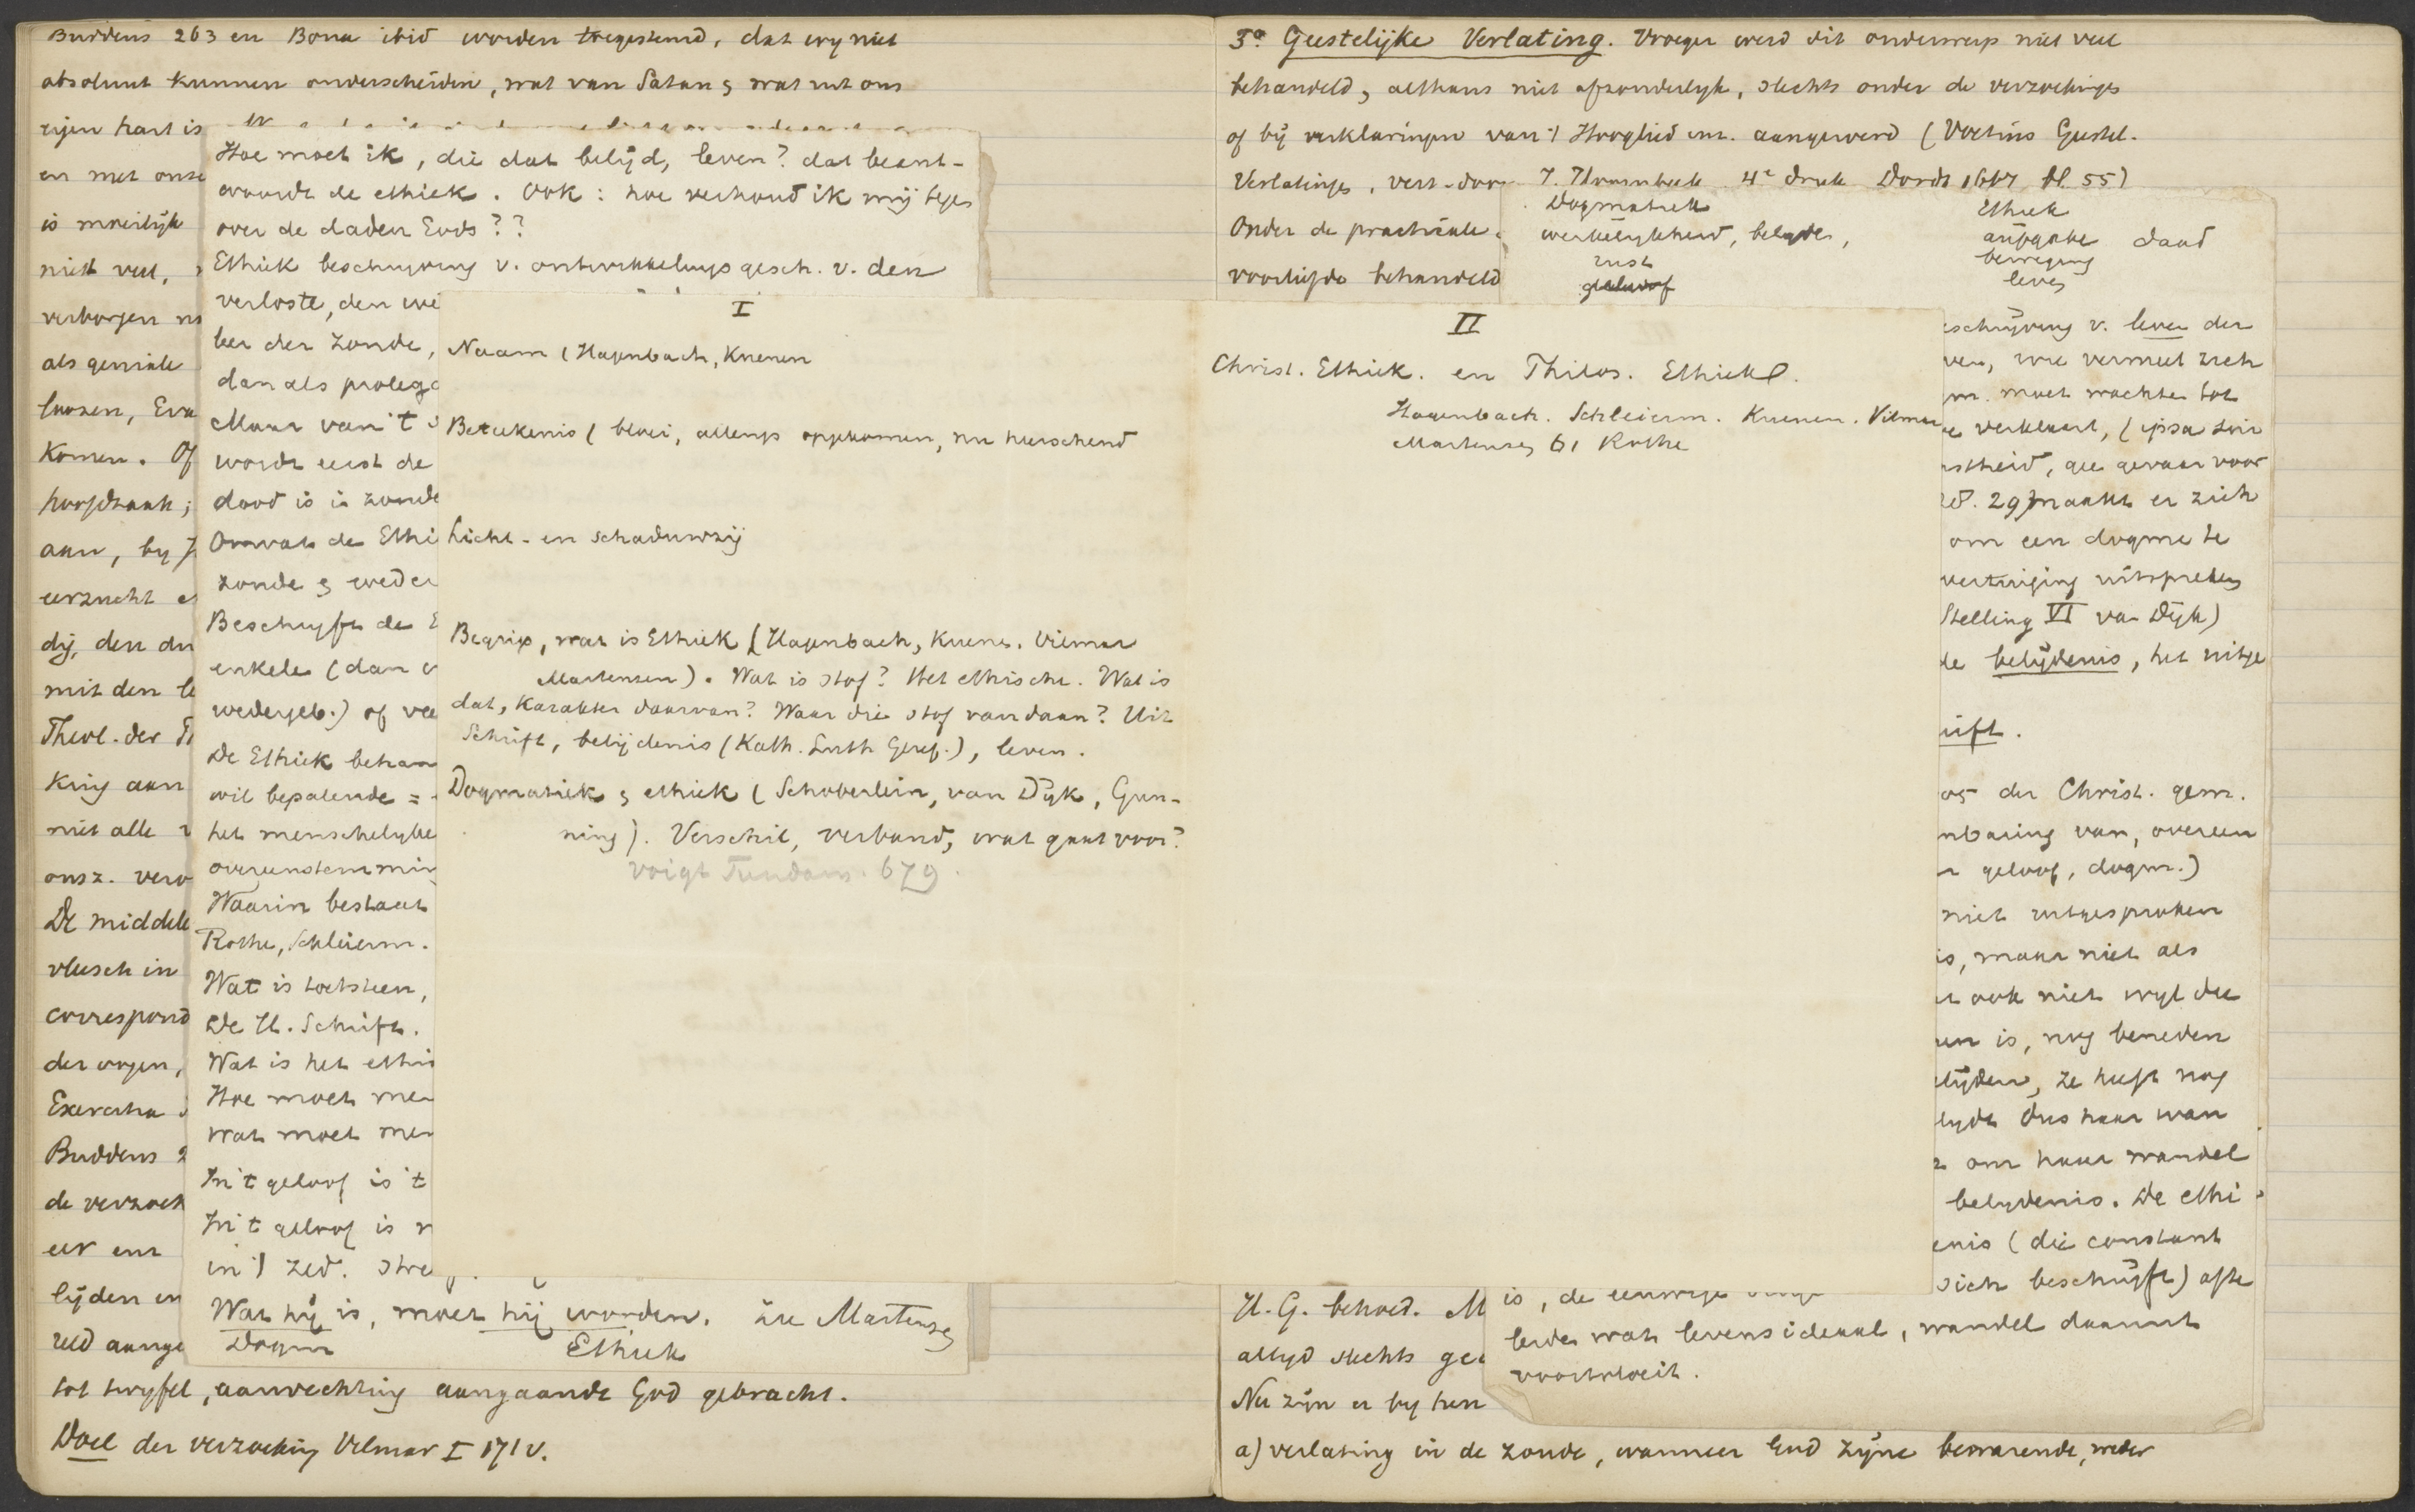 Buddeus 263 en Bona ibid worden toegestemd, dat wy niet
absoluut kunnen onderscheiden, wat van Satan & wat uit ons
eigen hart is
en met onze
is moeilijk
niet veel,
verborgen
als geniale
loozen,
komen. Of
hoofdzaak;
aan, by
eerzucht
dij, den
mit den
Theol. der
king aan
niet alle
onsz.
De middele
vleesch in
correspond
der oogen,
Exercitia
Buddeus 2
de verzoek
eer en
lijden en
reld aange
tot twyfel, aanvechting aangaande God gebracht.
Doel der verzoeking Vilmar I 171 v.
Hoe moet ik, die dat belijd, leven? dat beant-
woordt de ethiek. Ook: hoe verhoud ik mij tegen
over de daden Gods??
Ethiek beschryving v. ontwikkelings gesch. v. den
verloste, den we
ber der zonde,
dan als prolego
Maar van 't
wordt eerst de
dood is in zonde
Omvat de Ethi
zonde & weder
Beschryft de E
enkele (dan
wedergeb.) of vee
De Ethiek behan
wil bepalende =
het menschelyke
overeenstemmin
Waarin bestaat
Rothe, Schleierm.
Wat is toetssteen,
De H. Schrift.
Wat is het ethis
Hoe moet men
Wat moet men
In 't geloof is 't
In 't geloof is
in 't zed. stre
Wat hij is, moet hij worden. Zie Martensen
Dogm Ethiek
I
Naam (Hagenbach, Kuenen
Beteekenis (bloei, allengs opgekomen, nu heerschend
Licht- en schaduwzij
Begrip, wat is Ethiek (Hagenbach, Kuenen. Vilmar
Martensen). Wat is stof? Het ethische. Wat is
dat, Karakter daarvan? Waar die stof vandaan? Uit
Schrift, belijdenis (Kath. Luth Geref.), leven.
Dogmatiek & ethiek (Schoberlein, van Dijk, Gun-
ning). Verschil, verband, wat gaat voor?
Voigt Fundam. 679.
5o Geestelijke Verlating. Vroeger werd dit onderwerp niet veel
behandeld, althans niet afzonderlyk, slechts onder de verzoekingen
of bij verklaringen van 't Hooglied enz. aangeroerd (Voetius Geestel.
Verlatinge, vert. door J. Hoornbeek 4e druk Dordt bl. 55)
Onder de practicale
voorliefde behandeld
Dogmatiek Ethiek
werkelykheid, belyden, aufgabe daad
rust beweging
geloof leven
II
Christ. Ethiek. en Philos. Ethiek.
Hagenbach. Schleierm. Kuenen. Vilmar
Martensen 61 Rothe
eschrijving v. leven der
ven, wie vermeet zich
moet wachten tot
verklaart, (ipsa
nscheid, gee gevaar voor
29) maakt er zich
om een dogme te
vertuiging uitspreken
Stelling VI van Dijk)
de belijdenis, het uitge
rift.
der Christ. gem.
nbaring van, overeen
geloof, dogm.)
niet uitgesproken
is, maar niet als
ook niet wyl die
en is, nog beneden
elijden, ze heeft nog
lydt dus haar wan
om haar wandel
belydenis. De ethi
enis (die constant
sich beschrijft) of te
H. G. behoed.
altyd slechts
Nu zijn er by hen
is, de eenwige
leiden wat levensideaal, wandel daaruit
voortvloeit.
a) verlating in de zonde, wanneer God zijne bewarende, weder